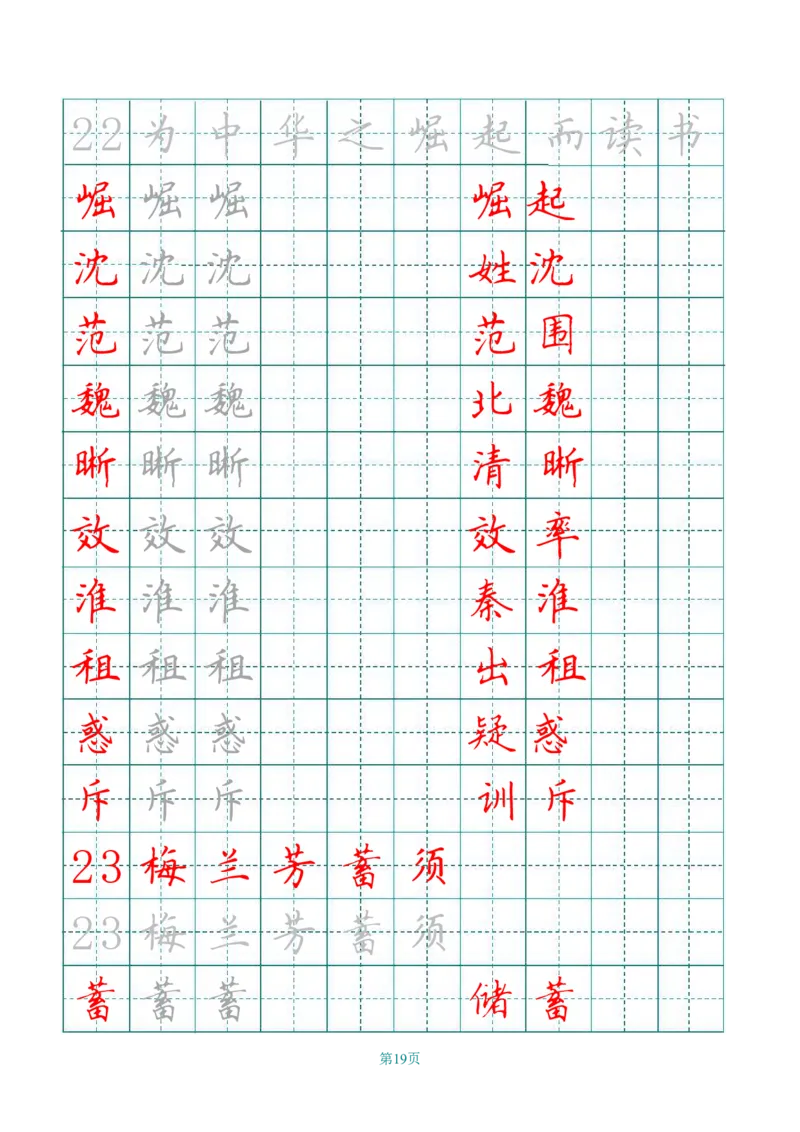 22为中华之崛起而读书
崛崛崛 崛起
沈沈沈 姓沈
范范范 范围
魏魏魏 北魏
晰晰晰 清晰
效效效 效率
淮淮淮 秦淮
租租租 出租
惑惑惑 疑惑
斥斥斥 训斥
23梅兰芳蓄须
23梅兰芳蓄须
蓄蓄蓄 储蓄
第19页